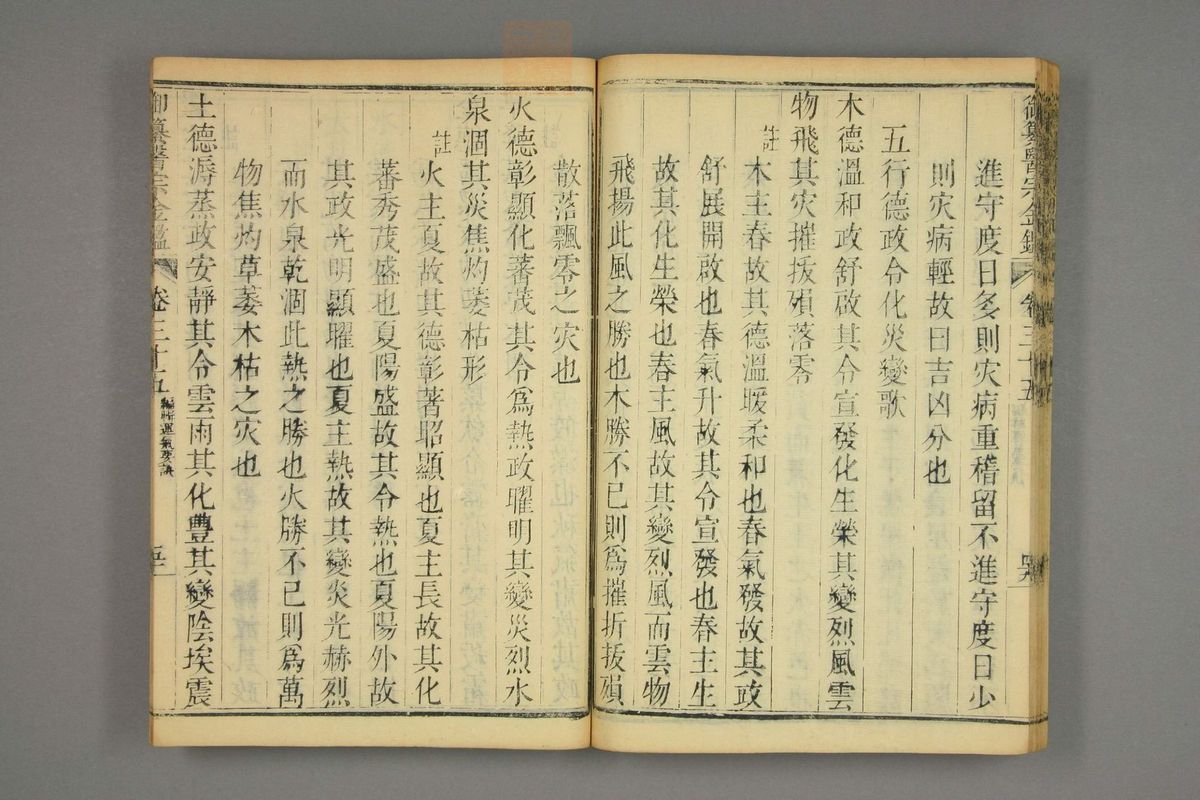 御纂醫宗金鑑 卷三十五
進守度日多則灾病重稽留不進守度日少
則灾病輕故曰吉凶分也
五行德政令化災變歌
木德溫和政舒啟其令宣發化生榮其變烈風雲
物飛其灾摧拔殞落零
註
木主春故其德溫暖柔和也春氣發故其政
舒展開啟也春氣升故其令宣發也春主生
故其化生榮也春主風故其變烈風而雲物
飛揚此風之勝也木勝不已則爲摧折拔殞
散落飄零之灾也
火德彰顯化蕃茂其令爲熱政曜明其變災烈水
泉涸其災焦灼萎枯形
註
火主夏故其德彰著昭顯也夏主長故其化
蕃秀茂盛也夏陽盛故其令熱也夏陽外故
其政光明顯曜也夏主熱故其變炎光赫烈
而水泉乾涸此熱之勝也火勝不已則爲萬
物焦灼草萎木枯之灾也
土德溽蒸政安靜其令雲雨其化豐其變陰埃震
御纂醫宗金鑑 卷三十五 編輯運氣要訣